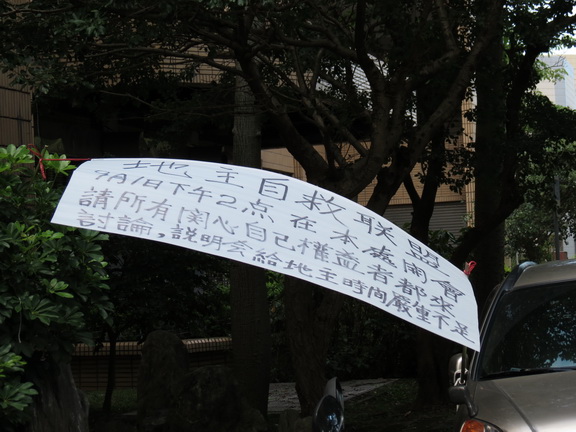 地主自救联盟
7月1日下午2点在本處開會
請所有関心自己權益者都來
討論,説明会給地主時間嚴重不足